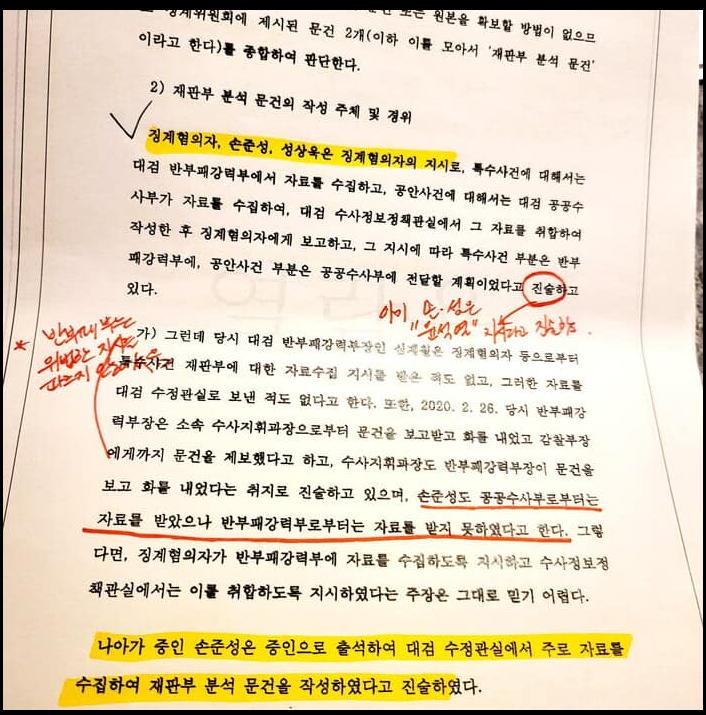 징계위원회에 제시된 문건 2개(이하 이를 모아서 '재판부 분석 문건'
이라고 한다)를 종합하여 판단한다.
2) 재판부 분석 문건의 작성 주체 및 경위
징계혐의자, 손준성, 성상욱은 징계혐의자의 지시로, 특수사건에 대해서는
대검 반부패강력부에서 자료를 수집하고, 공안사건에 대해서는 대검 공공수
사부가 자료를 수집하여, 대검 수사정보정책관실에서 그 자료를 취합하여
작성한 후 징계혐의자에게 보고하고, 그 지시에 따라 특수사건 부분은 반부
패강력부에, 공안사건 부분은 공공수사부에 전달할 계획이었다고 진술하고
있다.
아이 손·성은
"윤석열" 지시라고 진술함.
* 반부패부는
위법한 지시
따르지
가) 그런데 당시 대검 반부패강력부장인 신계철은 징계혐의자 등으로부터
특수사건 재판부에 대한 자료수집 지시를 받은 적도 없고, 그러한 자료를
대검 수정관실로 보낸 적도 없다고 한다. 또한, 2020. 2. 26. 당시 반부패강
력부장은 소속 수사지휘과장으로부터 문건을 보고받고 화를 내었고 감찰부장
에게까지 문건을 제보했다고 하고, 수사지휘과장도 반부패강력부장이 문건을
보고 화를 내었다는 취지로 진술하고 있으며, 손준성도 공공수사부로부터는
자료를 받았으나 반부패강력부로부터는 자료를 받지 못하였다고 한다. 그렇
다면, 징계혐의자가 반부패강력부에 자료를 수집하도록 지시하고 수사정보정
책관실에서는 이를 취합하도록 지시하였다는 주장은 그대로 믿기 어렵다.
나아가 증인 손준성은 증인으로 출석하여 대검 수정관실에서 주로 자료를
수집하여 재판부 분석 문건을 작성하였다고 진술하였다.